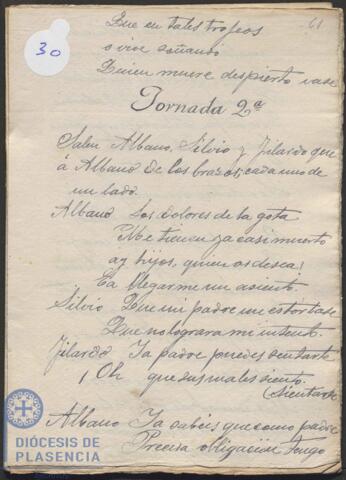 61
30
Que en tales trofeos
o vive soñando
Quien muere despierto vase
Jornada 2ª
Salen Albano, Silvio y Jilardo que
á Albano de los brazos, cada uno de
un lado.
Albano Los dolores de la gota
Me tienen ya casi muerto
ay hijos, quien os desea!
Ea llegarme un asiento.
Silvio Que mi padre me estorbase
Que no lograra mi intento.
Jilardo Ya padre puedes sentarte
¡Oh que sus males siento.
(Sientase
Albano Ya sabéis que como padre
Precisa obligación tengo
DIÓCESIS DE
PLASENCIA